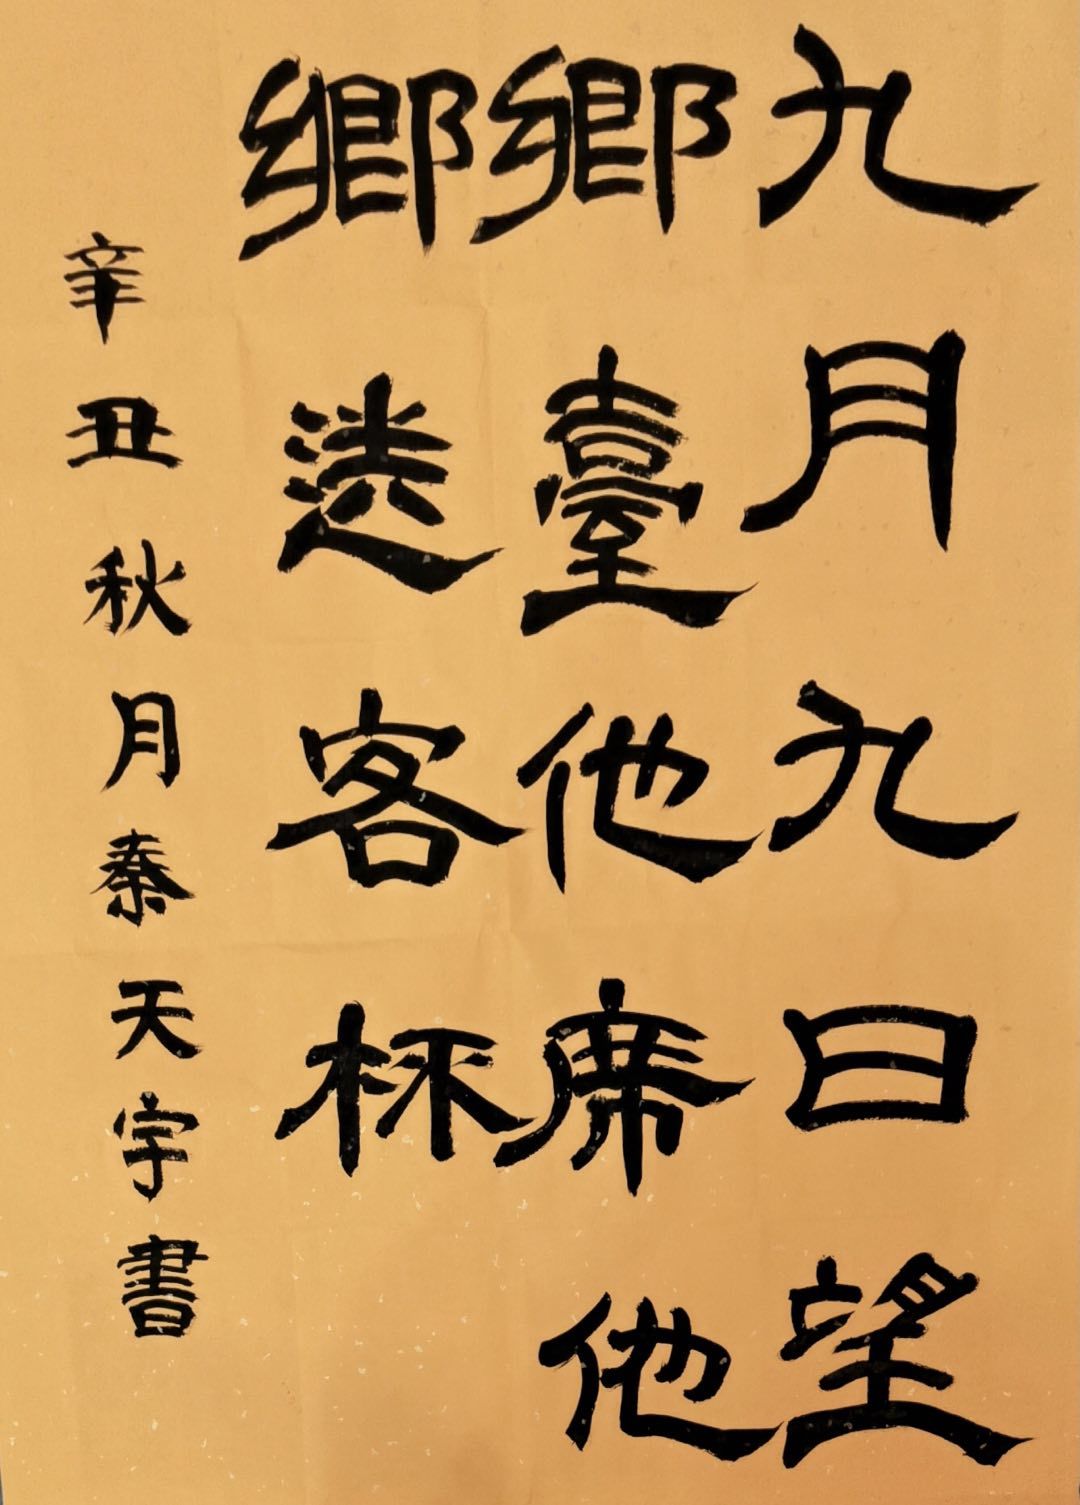 九月九日望
鄉臺他席他
鄉送客杯
辛丑秋月秦天宇書